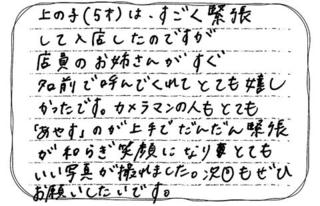 上の子(5才)は、すごく緊張
して入店したのですが
店員のお姉さんがすぐ
名前で呼んでくれてとても嬉し
かったです。カメラマンの人もとても
「あやす」のが上手でだんだん緊張
が和らぎ笑顔になりとても
いい写真が撮れました。次回もぜひ
お願いしたいです。